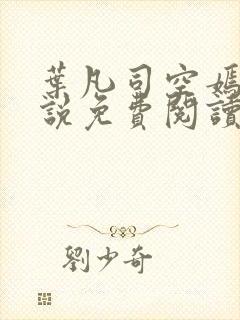 葉凡司空嫣
說免費閱讀
劉少奇